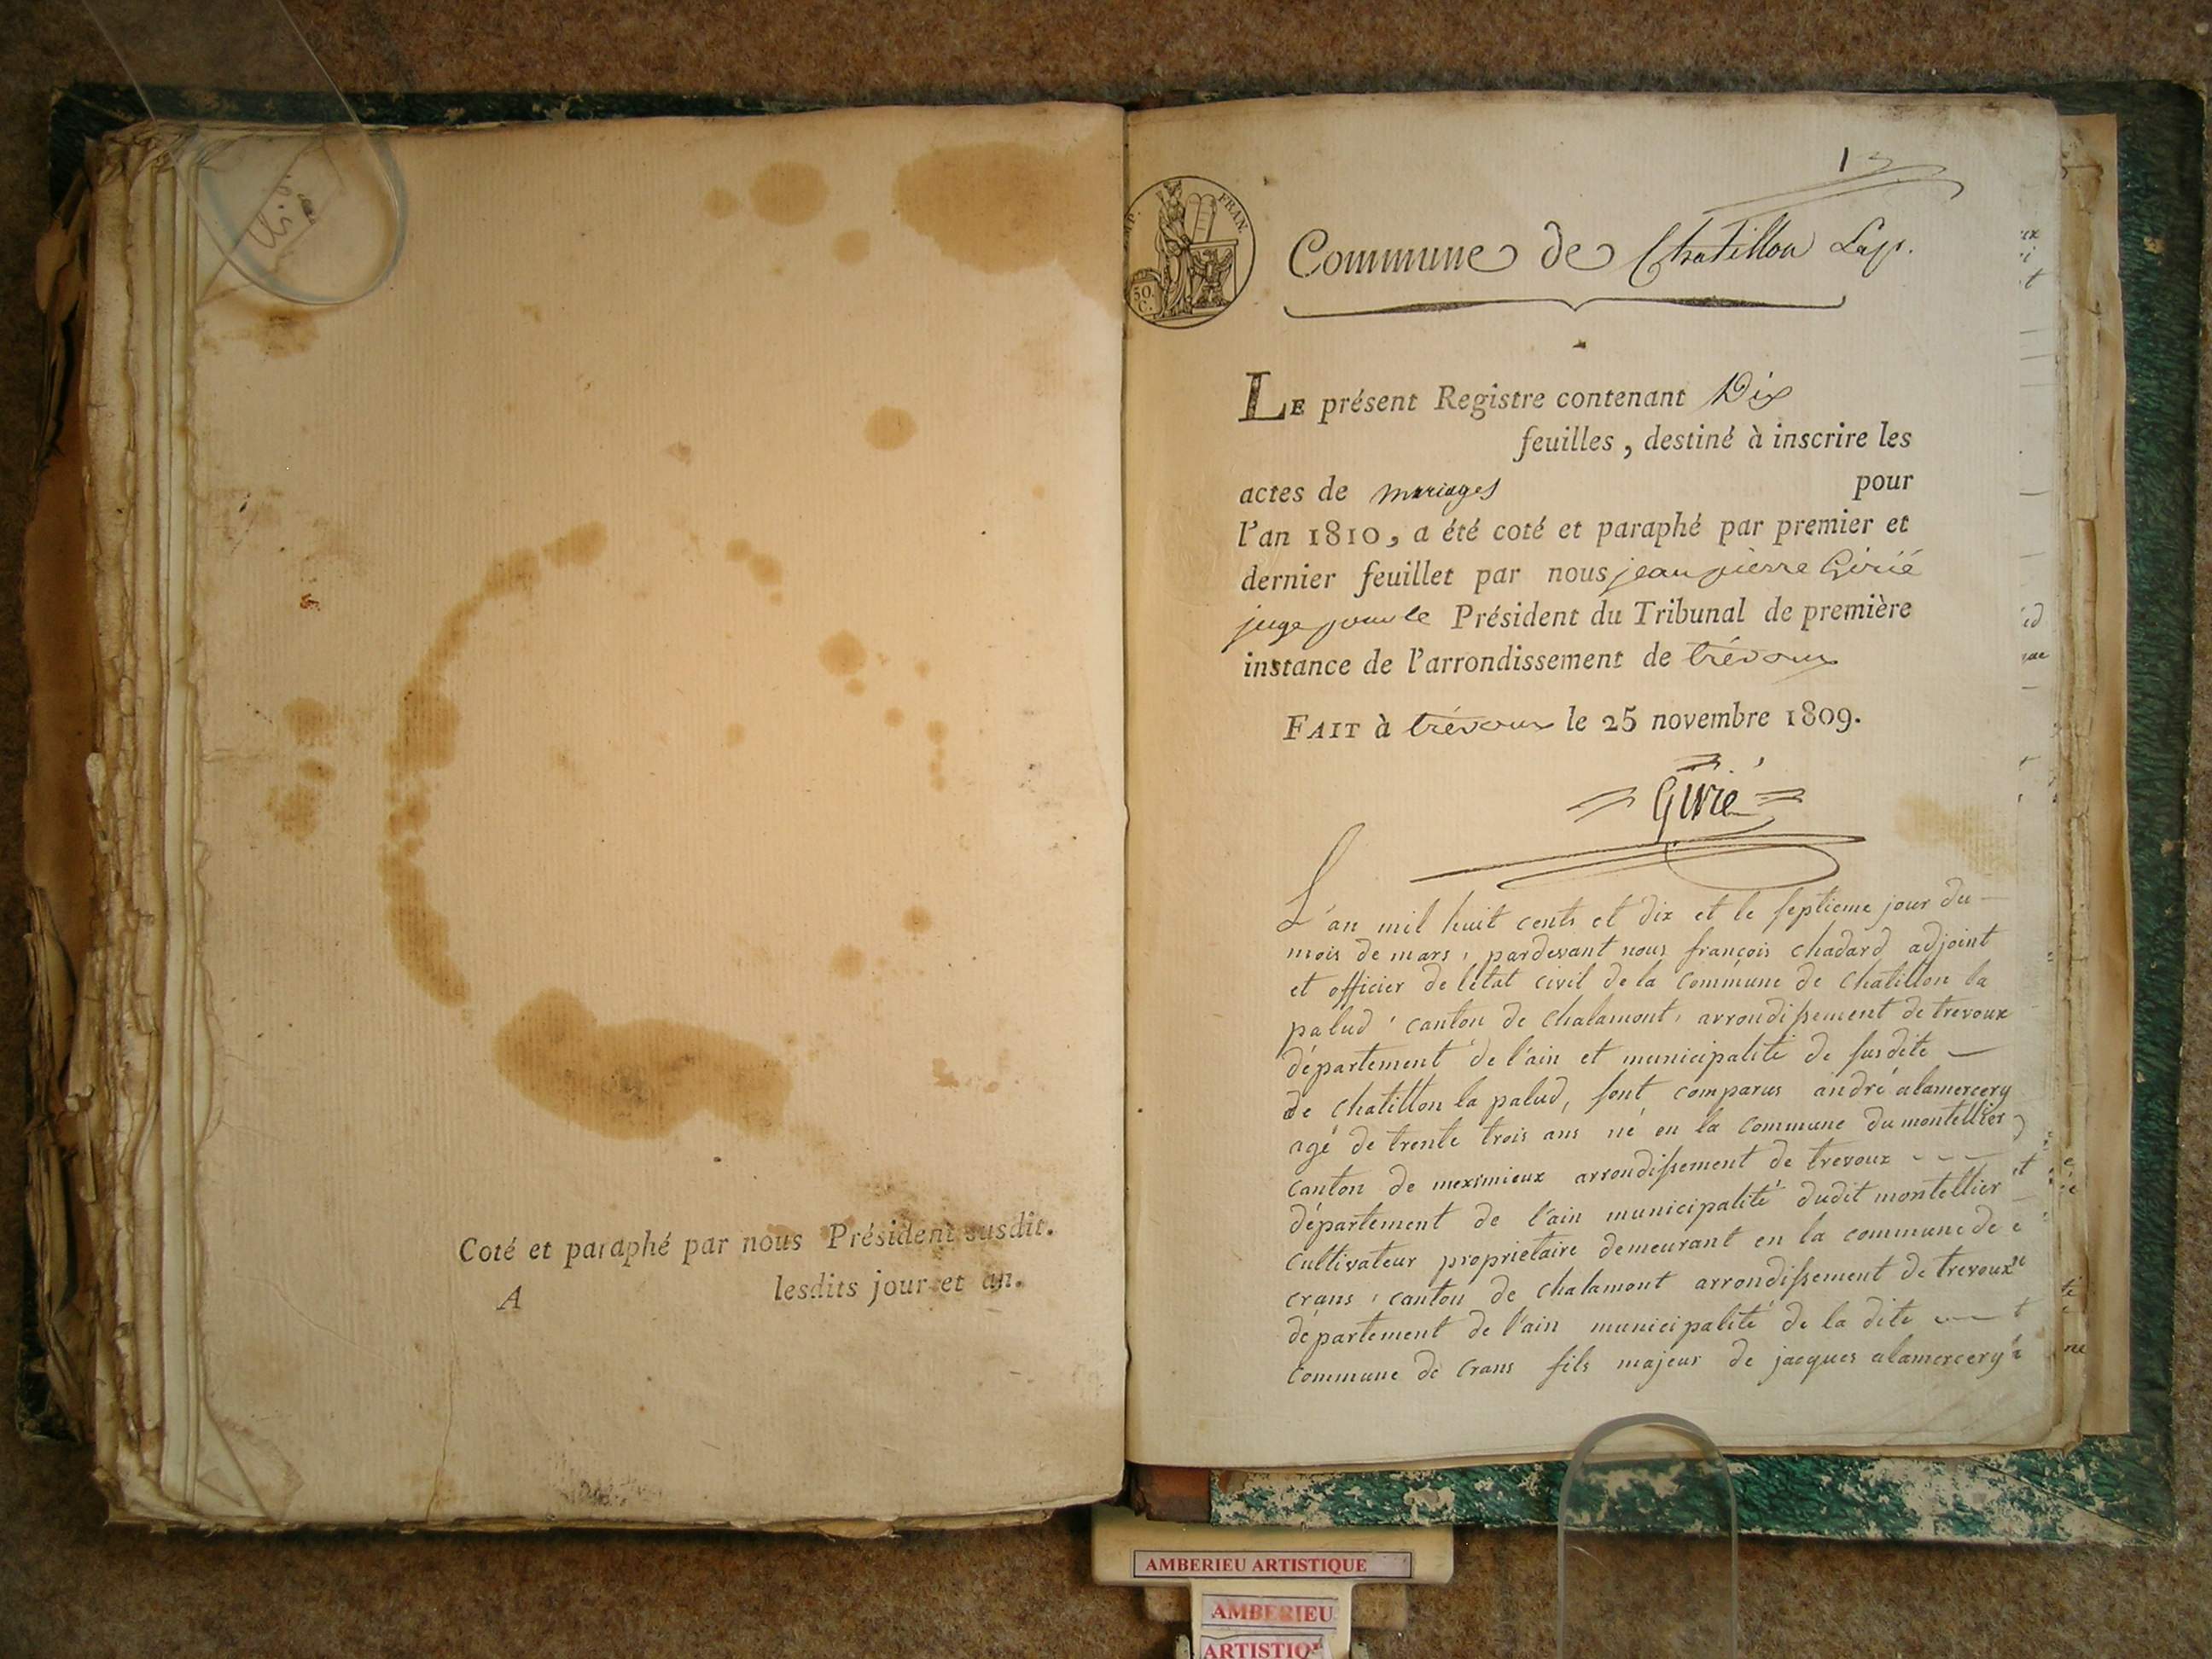 Coté et paraphé par nous Président susdit.
A lesdits jour et an.
1
IMP. FRAN.
50. C.
Commune de Chatillon Lap.
LE présent Registre contenant Dix
feuilles, destiné à inscrire les
actes de mariages pour
l'an 1810, a été coté et paraphé par premier et
dernier feuillet par nous jean pierre Girié
juge pour le Président du Tribunal de première
instance de l'arrondissement de trévoux
FAIT à trévoux le 25 novembre 1809.
Girié
L'an mil huit cents et dix et le septieme jour du
mois de mars, pardevant nous françois chadard adjoint
et officier de létat civil de la Commune de Chatillon la
palud, canton de Chalamont, arrondissement de trevoux
département de l'ain et municipalité de susdite
de Chatillon la palud, sont comparus andré alamercery
agé de trente trois ans né en la Commune du montellier
Canton de meximieux arrondissement de trevoux
département de l'ain municipalité dudit montellier
Cultivateur proprietaire demeurant en la commune de
crans, canton de Chalamont arrondissement de trevoux
département de l'ain municipalité de la dite
Commune de Crans fils majeur de jacques alamercery
AMBERIEU ARTISTIQUE
AMBERIEU
ARTISTIQU